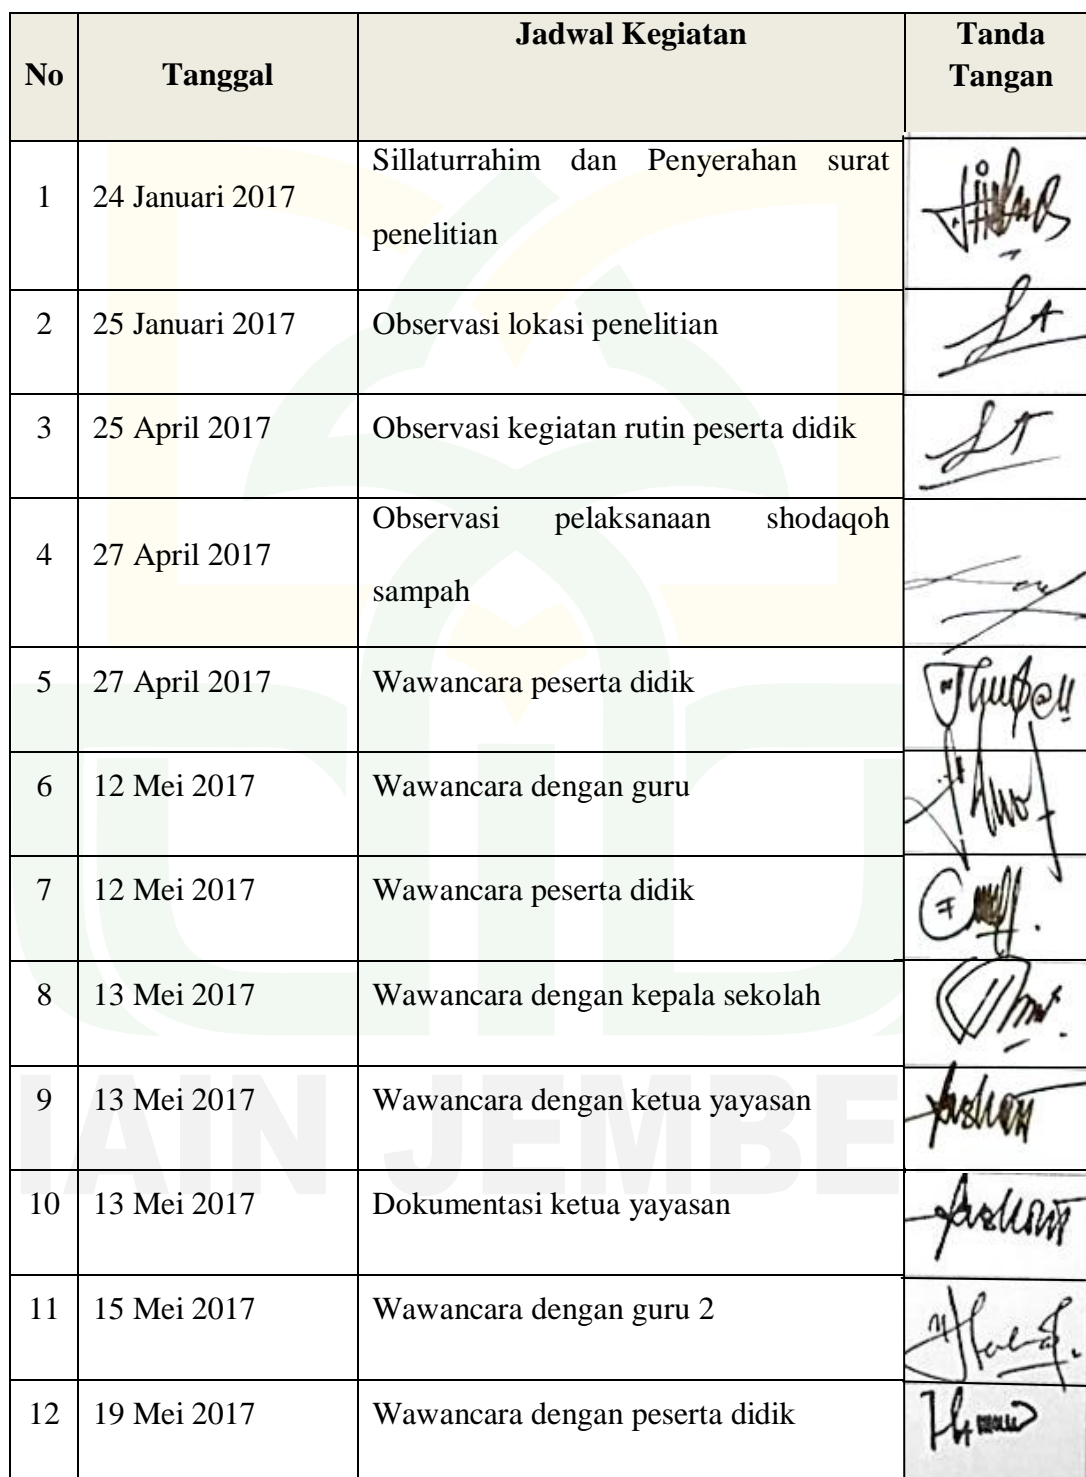 No Tanggal Jadwal Kegiatan Tanda
Tangan
1 24 Januari 2017 Sillaturrahim dan Penyerahan surat
penelitian
2 25 Januari 2017 Observasi lokasi penelitian
3 25 April 2017 Observasi kegiatan rutin peserta didik
4 27 April 2017 Observasi pelaksanaan shodaqoh
sampah
5 27 April 2017 Wawancara peserta didik
6 12 Mei 2017 Wawancara dengan guru
7 12 Mei 2017 Wawancara peserta didik
8 13 Mei 2017 Wawancara dengan kepala sekolah
9 13 Mei 2017 Wawancara dengan ketua yayasan
IAIN JEMBE
10 13 Mei 2017 Dokumentasi ketua yayasan
11 15 Mei 2017 Wawancara dengan guru 2
12 19 Mei 2017 Wawancara dengan peserta didik